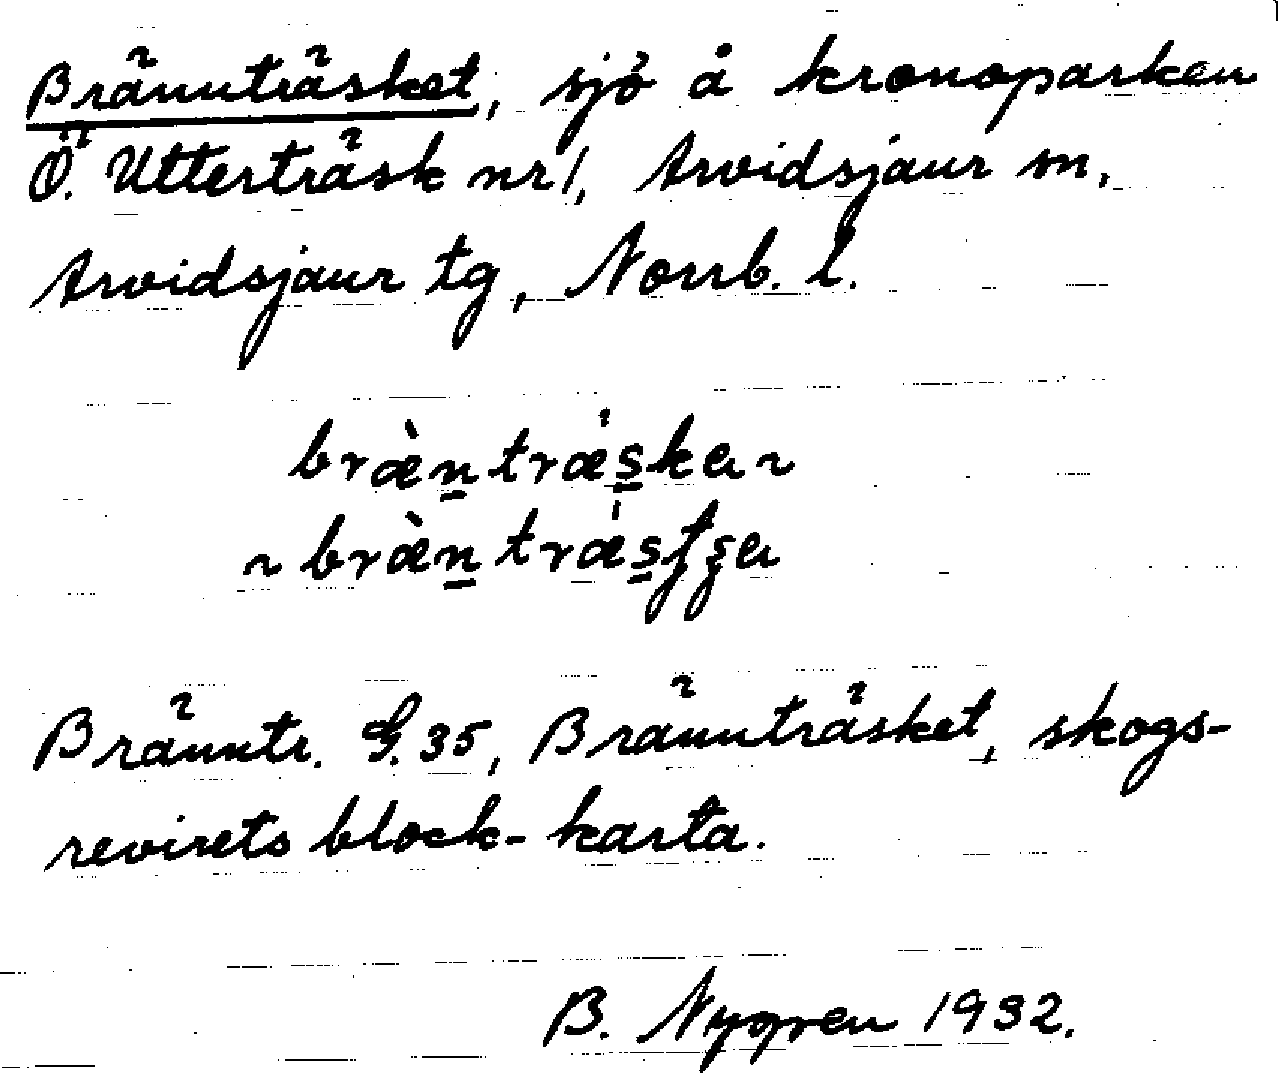 Brännträsket, sjö å kronoparken
Ö. Utterträsk nr 1, Arvidsjaur sn,
Arvidsjaur tg, Norrb. l.
bræ̀n̲træ̍s̲ka ~
~ bræ̀n̲træ̍s̲ʃʂa
Bränntr. G. 35, Brännträsket, skogs-
revirets block-karta.
B. Nygren 1932.